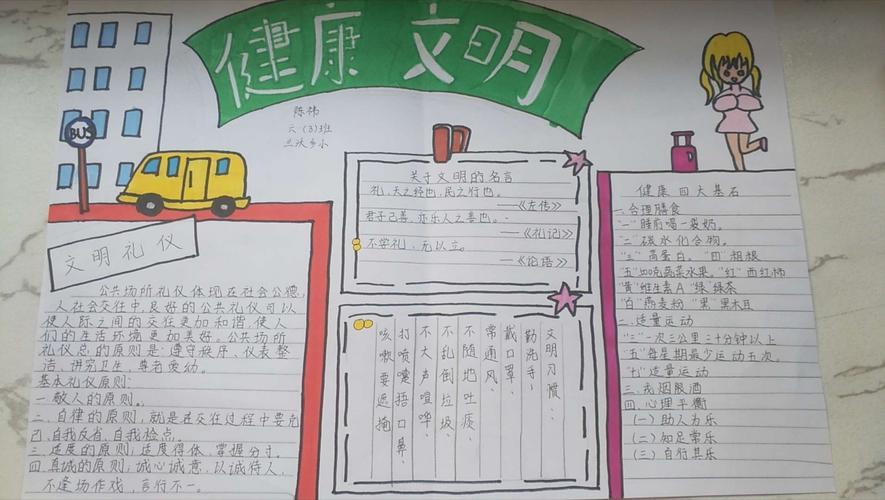 健康 文明
陈祎
六（3）班
兰沃乡小
BUS
文明礼仪
公共场所礼仪体现在社会公德，
人社会交往中，良好的公共礼仪可以
使人际之间的交往更加和谐，使人
们的生活环境更加美好。公共场所
礼仪总的原则是：遵守秩序、仪表整
洁、讲究卫生、尊老爱幼。
基本礼仪原则：
一.敬人的原则。
二.自律的原则，就是在交往过程中要克
己、自我反省、自我检点。
三.适度的原则；适度得体，掌握分寸。
四.真诚的原则；诚心诚意，以诚待人，
不逢场作戏，言行不一。
关于文明的名言
礼，天之经也，民之行也。
——《左传》
君子己善，亦乐人之善也。
——《礼记》
不学礼，无以立。
——《论语》
文明习惯：
勤洗手、
戴口罩、
常通风、
不随地吐痰、
不乱倒垃圾、
不大声喧哗、
打喷嚏捂口鼻、
咳嗽要遮掩
健康四大基石
一、合理膳食
"一"睡前喝一袋奶。
"二"碳水化合物。
"三"高蛋白。"四"粗粮
"五"500克蔬菜水果。"红"西红柿
"黄"维生素A "绿"绿茶
"白"燕麦粉 "黑"黑木豆
二、适量运动
"三"一次三公里三十分钟以上
"五"每星期最少运动五次。
"七"适量运动
三、戒烟限酒
四、心理平衡
（一）助人为乐
（二）知足常乐
（三）自行其乐